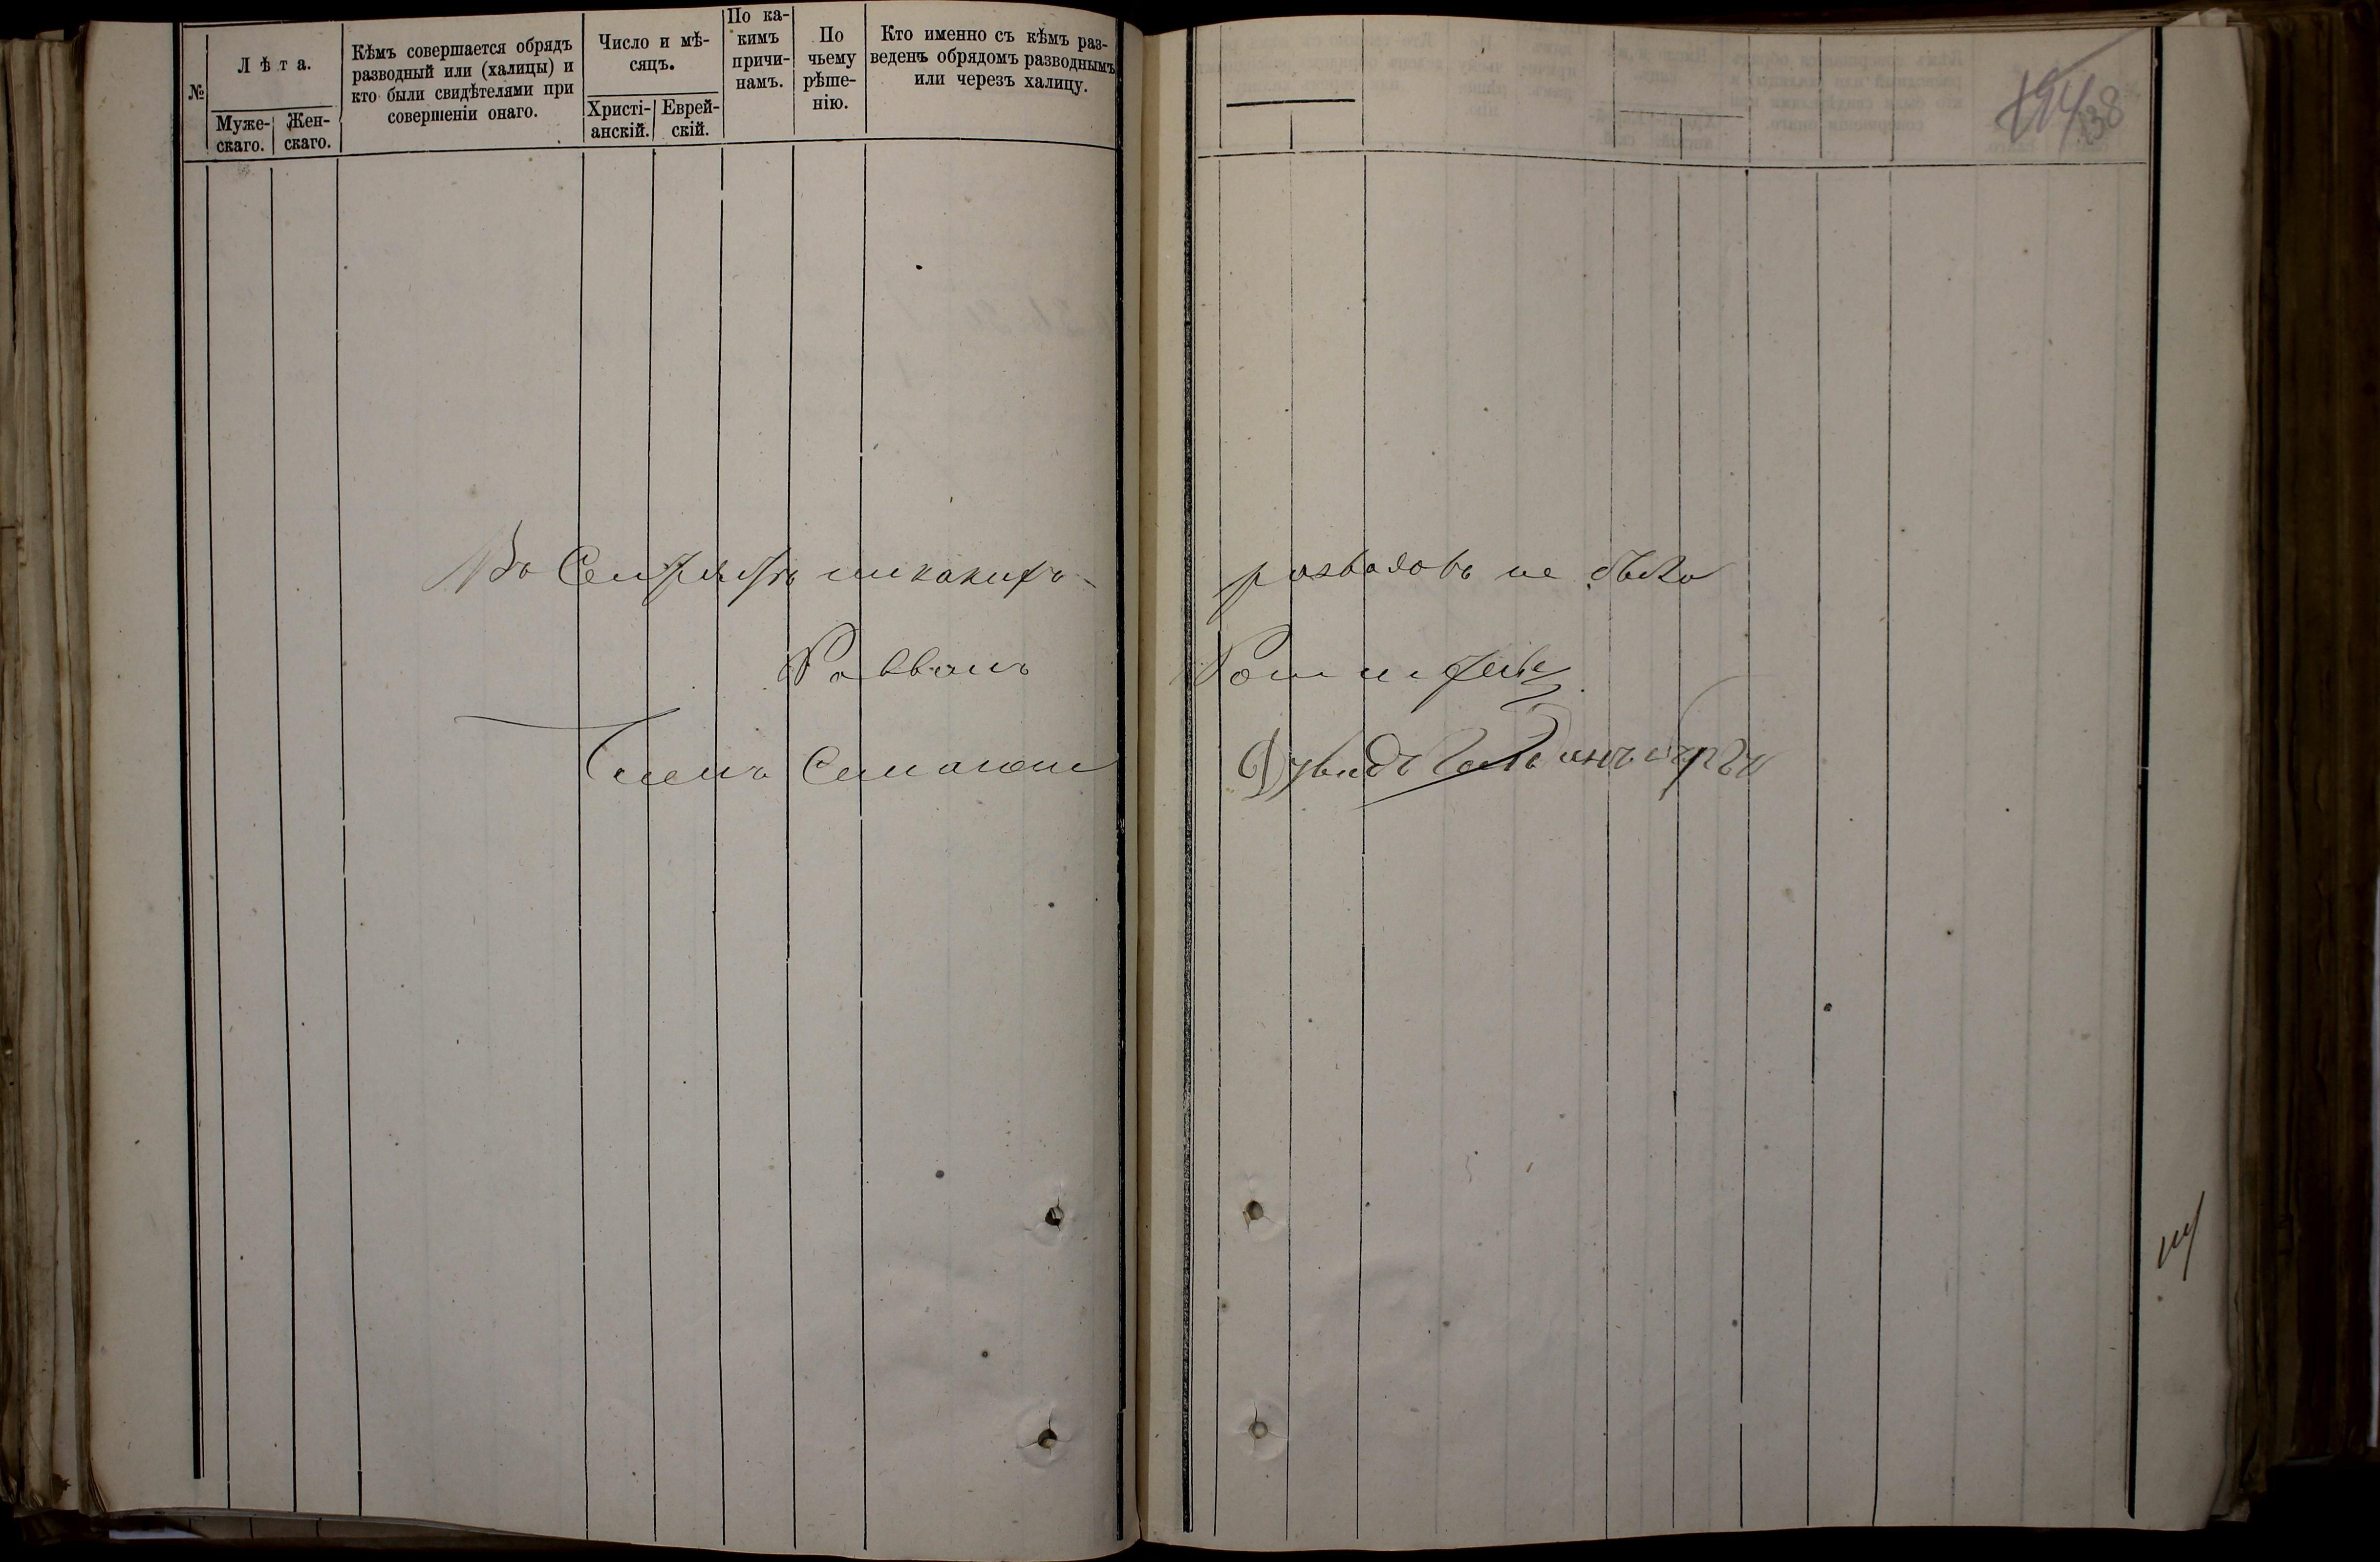 №
Лѣта.
Мужескаго.
Женскаго.
Кѣмъ совершается обрядъ
разводный или (халицы) и
кто были свидѣтелями при
совершеніи онаго.
Число и мѣ-
сяцъ.
Христі-
анскій.
Еврей-
скій.
По ка-
кимъ
причи-
намъ.
По
чьему
рѣше-
нію.
Кто именно съ кѣмъ раз-
веденъ обрядомъ разводнымъ
или черезъ халицу.
194
138
Въ Сентябрѣ никакихъ разводовъ не было
Раввинъ
Членъ Синагоги Дувидъ